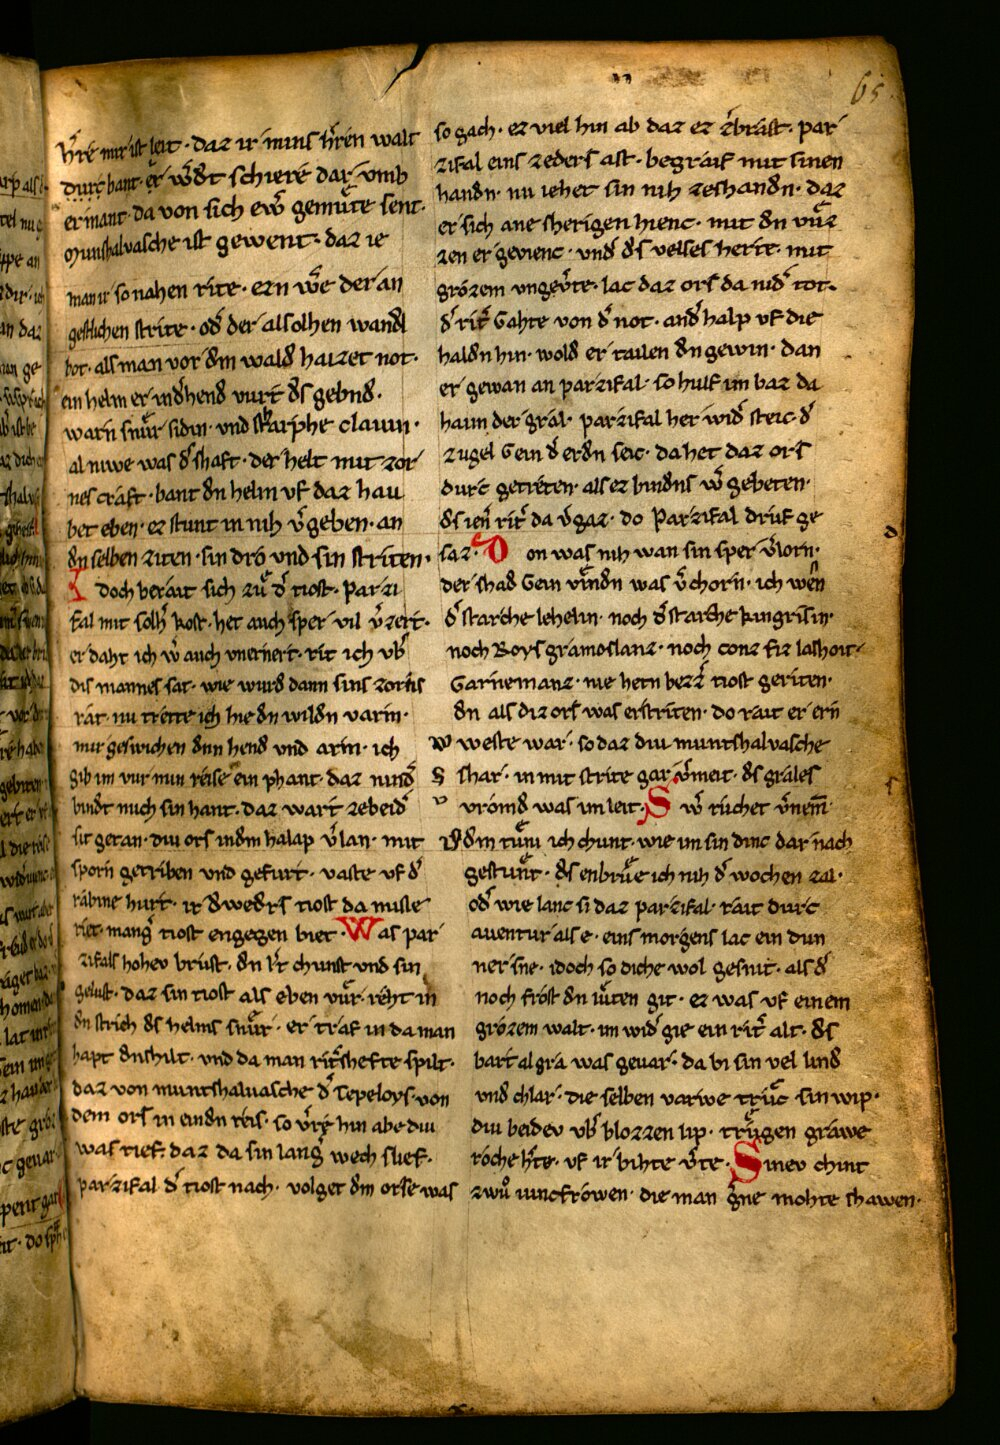 65
h̄re mir ist leit · daz ir mins h̄ren walt
durc bant · er w̄dt schiere dar vmb
ermant · da von sich ew̄ gemůte sent ·
Munshalvasche ist gewent · daz ie
man ir so nahen rite · ezn w̄e der an
gestlichen strite · od̄ der alsolhen wandl
bot · als man vor dm wald haizet not ·
ein helm er ind̄ hend vurt ds gebnd ·
warn snůr sidin · vnd skarphe clauin ·
al niwe was d̄ shaft · der helt mit zor
nes craft · bant dn helm vf daz hau
bet eben · ez stunt in nih v̄geben · an
dn selben ziten · sin dro vnd sin striten ·
I doch berait sich zů d̄ tiost · Parzi
fal mit solh̄ kost · het auch sper vil v̄zert ·
er daht ich w̄ auch vnernert · rit ich vb̄
dis mannes sat · wie wurd dann sins zorns
rat · nu trette ich hie dn wildn varm ·
mir geswichen dnn hend vnd arm · ich
gib im vur min reise ein phant · daz nind̄
bindt mich sin hant · daz wart zebeid̄
sit getan · diu ors indm halap v̄lan · mit
sporn getriben vnd gefurt · vaste vf d̄
rabine hurt · ir dwedrs tiost da misse
riet · manḡ tiost engegen biet · Was par
zifals hohev brust · dn lr̄t chunst vnd sin
gelust · daz sin tiost als eben vůr · reht in
dn strich ds helms snůr · er traf in da man
hapt dnshilt · vnd da man rit̄shefte spilt ·
daz von muntshaluasche d̄ Tepeloys · von
dem ors in eindn reis · so v̄re hin abe diu
was tief · daz da sin lanḡ wech slief ·
parzifal d̄ tiost nach · volget dm orse was
so gach · ez viel hin ab daz ez z̄brast · par
zifal eins zeders ast · begraif mit sinen
handn · nu iehet sin nih zeshandn · daz
er sich ane sherigen hienc · mit dn vůz
zen er gevienc · vnd ds velses herte · mit
grozem vngev̄te · lac daz ors da nid̄ tot ·
d̄ rit̄ Gahte von d̄ not · and̄ halp vf die
haldn hin · wold er tailen dn gewin · dan
er gewan an parzifal · so hulf im baz da
haim der gral · parzifal her wid̄ steic · d̄
zugel Gein d̄ erdn seic · da het daz ors
durc getreten · als ez bindns w̄ gebeten ·
ds ien̄ rit̄ da v̄gaz · do Parzifal druf ge
saz · D on was nih wan sin sper v̄lorn ·
der shad Gein vůndn was v̄chorn · ich wen
d̄ starche lehelin · noch d̄ starche kingrisin ·
noch Roys gramoslanz · noch conz fiz lashoit ·
Garnemanz · nie hetn bezz̄ tiost geriten ·
dn als diz ors was erstriten · do rait er ern
w weste war · so daz diu muntshalvasche
s shar · in mit strite gar v̄meit · ds grales
v vromd was im leit · S w̄ růchet v̄nem̄ ·
d dm tům ich chunt · wie im sin dinc dar nach
gestunt · ds enbrůe ich nih d̄ wochen zal ·
od̄ wie lanc si daz parzifal · rait durc
auentur als e · eins morgens lac ein dun
ner sne · idoch so diche wol gesnit · als d̄
noch frost dn lůten git · ez was vf einem
grozem walt · im wid̄ gie ein rit̄ alt · ds
bart al gra was gevar · da bi sin vel lind
vnd chlar · die selben varwe trůc sin wip ·
diu beidev vb̄ blozzen lip · trůgen grawe
roche h̄te · vf ir bihte v̄te · Sinev chint
zwů iuncfrowen · die man ḡne mohte shawen ·